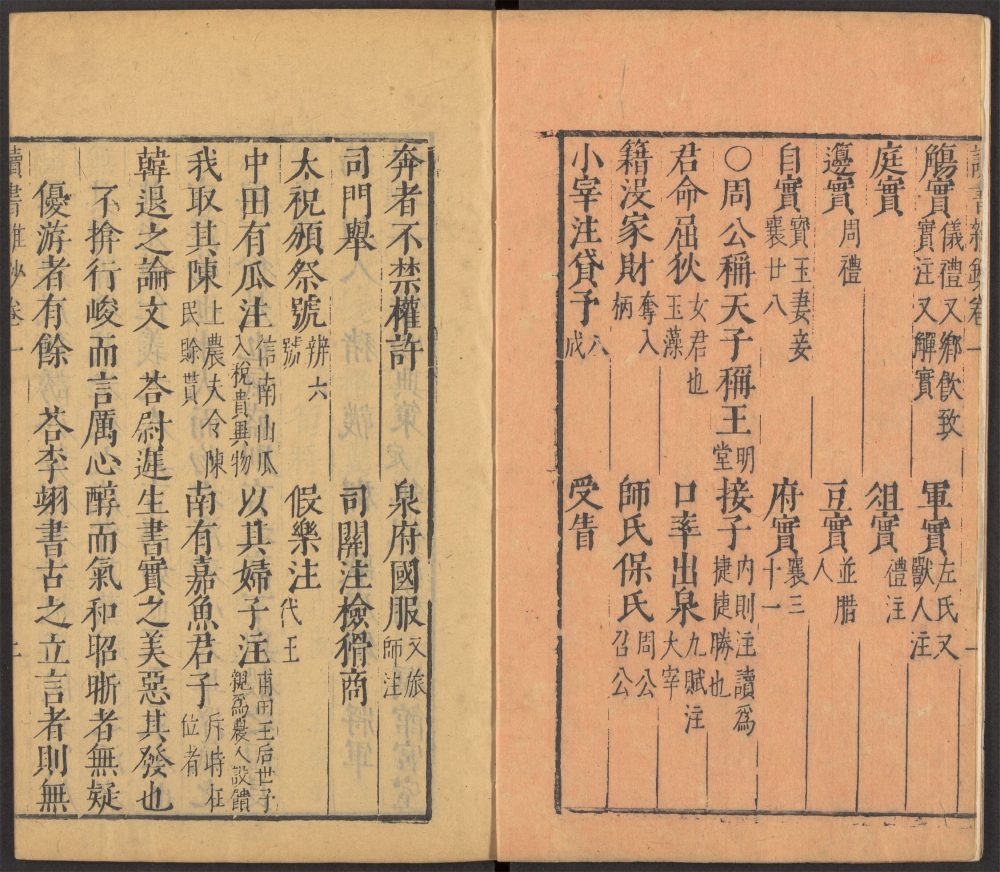 讀書雜鈔卷一 一
觴實儀禮又鄉飲致實注又解實 軍實左氏又獸人注
庭實 俎實禮注
籩實周禮 豆實並腊人
自實寶玉妻妾襄廿八 府實襄三十一
〇周公稱天子稱王明堂 接子內則注讀爲捷捷勝也
君命屈狄女君也玉藻 口率出泉九賦注大宰
籍没家財奪入柄 師氏保氏周公召公
小宰注貸予八成 受告
奔者不禁權許 泉府國服又旅師注
司門舉 司關注檢猾商
太祝頒祭號辨六號 假樂注代王
中田有瓜注信南山瓜入稅貴異物 以其婦子注甫田王后世子親爲農人設饋
我取其陳上農夫令陳民賒貰 南有嘉魚君子斥時在位者
韓退之論文 荅尉遲生書實之美惡其發也
不揜行峻而言厲心醇而氣和昭晰者無疑
優游者有餘 荅李翊書古之立言者則無
讀書雜鈔卷一